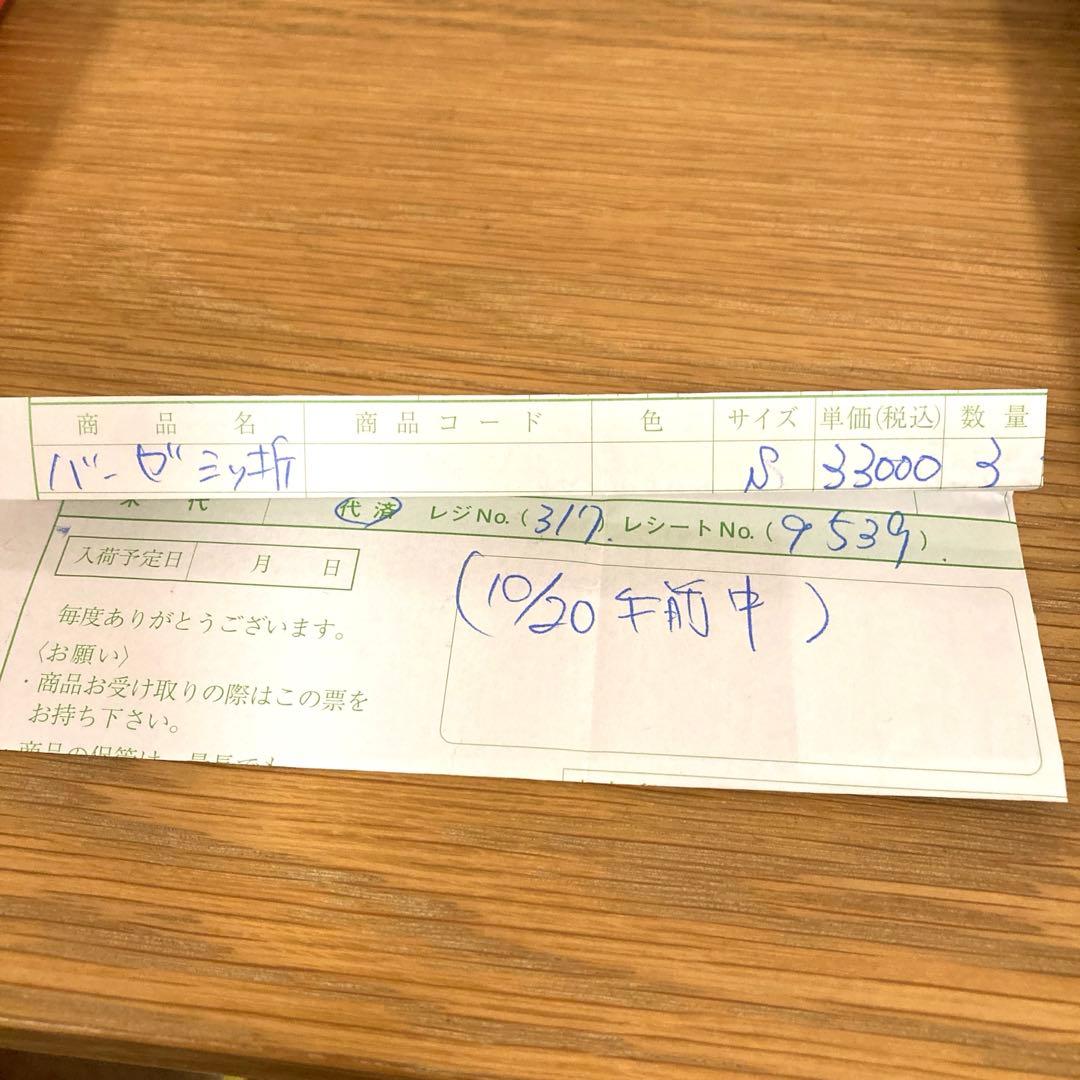 商品名 商品コード 色 サイズ 単価(税込) 数量
バーゼミッ折 S 33000 3
未代 代済 レジNo.(317) レシートNo.(9539)
入荷予定日 月 日
(10/20 午前中)
毎度ありがとうございます。
〈お願い〉
・商品お受け取りの際はこの票を
お持ち下さい。